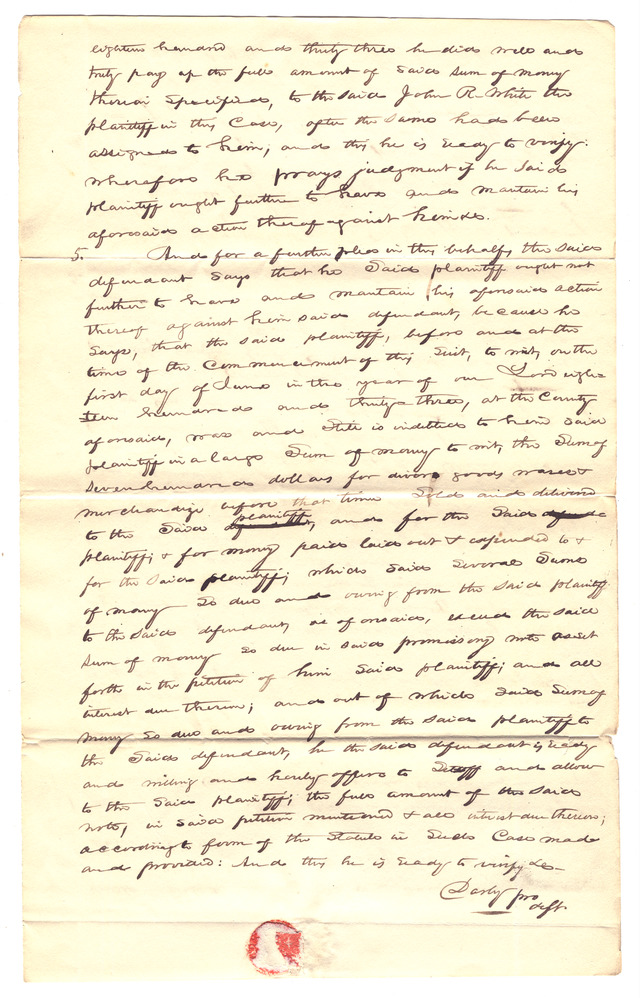 eighteen hundred and thirty three he did well and
truly pay up the full amount of said sum of money
therein specified, to the said John R. White the
plaintiff in this case, after the same had been
assigned to him; and this he is ready to verify:
wherefore he prays judgment if he said
plaintiff ought further to have and mantain his
aforesaid action thereof against him &c.
5. And for a further plea in this behalf, the said
defendant says that he said plaintiff ought not
further to have and mantain his aforesaid action
thereof against him said defendant, because he
says, that the said plaintiff, before and at the
time of the commencement of this suit, to wit, on the
first day of June in the year of our Lord eigh-
teen hundred and thirty three, at the County
aforesaid, was and still is indebted to him said
plaintiff in a large sum of money to wit, the sum of
seven hundred dollars for divers goods wares &
merchandize before that time sold and delivered
to the said plaintiff, and for the said
plaintiff; & for money paid laid out & expended to &
for the said plaintiff; which said several sums
of money so due and owing from the said plaintiff
to the said defendant, as aforesaid, exceed the said
sum of money so due in said promissory note as set
forth in the petition of him said plaintiff; and all
interest due therein; and out of which said sum of
money so due and owing from the said plaintiff to
the said defendant, he the said defendant is ready
and willing and hereby offers to set off and allow
to the said plaintiff; the full amount of the said
note, in said petition mentioned & all interest due thereon;
according to form of the Statute in such case made
and provided: And this he is ready to verify &c
Darby pro
deft.